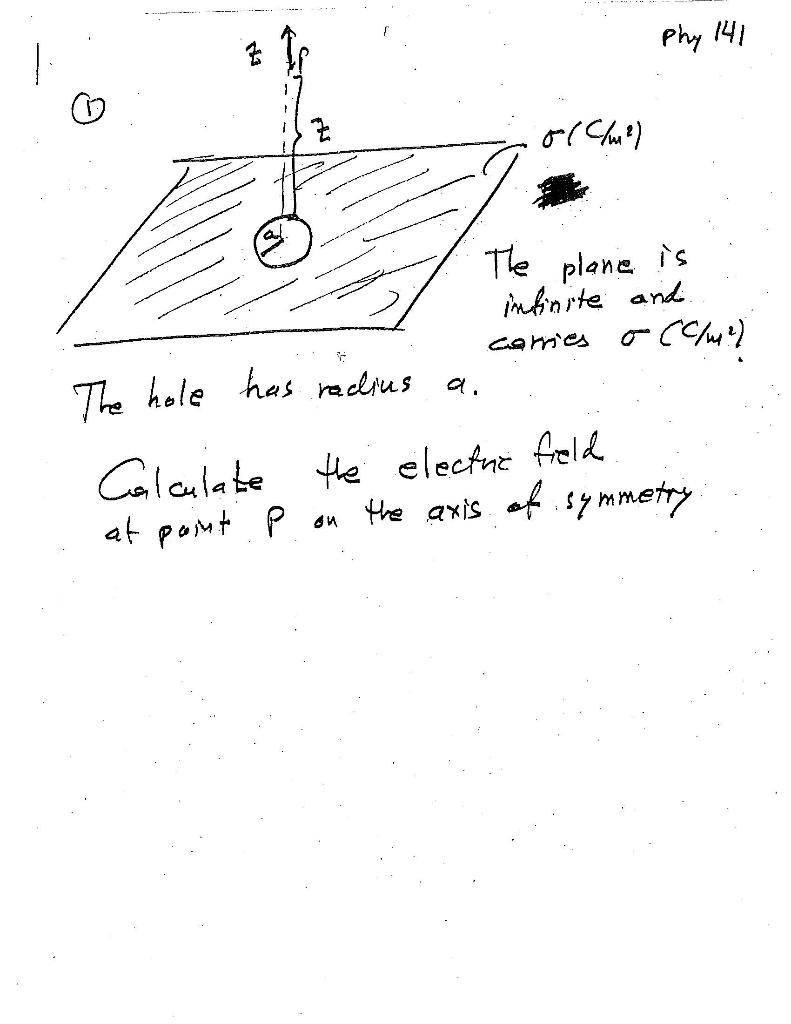 Phy 141
①
z
P
z
σ (C/m²)
a
The plane is
infinite and
carries σ (C/m²).
The hole has radius a.
Calculate the electric field
at point P on the axis of symmetry